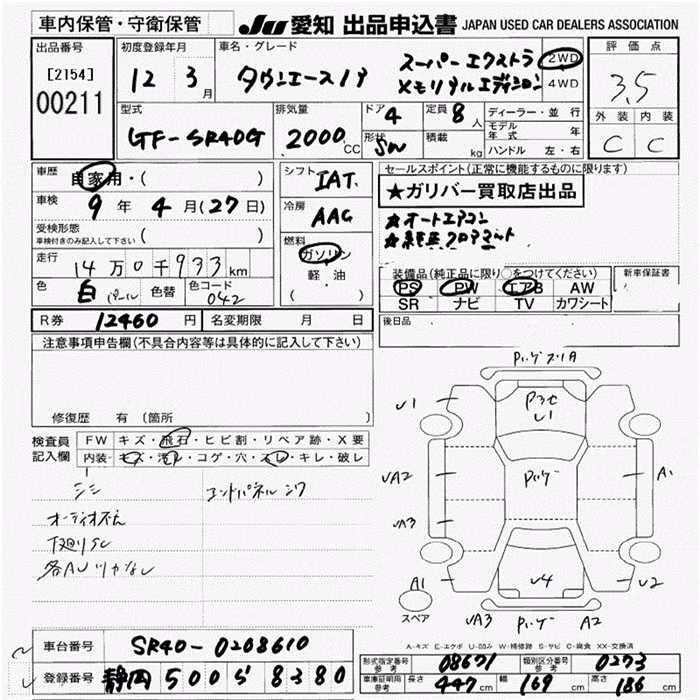 車内保管・守衛保管
JU 愛知 出品申込書 JAPAN USED CAR DEALERS ASSOCIATION
出品番号
[2154]
00211
初度登録年月
12 3月
車名・グレード
タウンエースノア
スーパーエクストラ
メモリアルエディション
2WD
4WD
評価点
3.5
外装 内装
C C
型式
GF-SR40G
排気量
2000 CC
ドア 4
形状 SW
定員 8人
積載 kg
ディーラー・並行
モデル年式 年
ハンドル 左・右
車歴
自家用・( )
車検
9年 4月(27日)
受検形態
車検付きのみ記入して下さい ( )
走行
14万0千933km
色
白 パール
色替
色コード
042
シフト
IAT
冷房
AAC
燃料
ガソリン
軽・油
( )
セールスポイント(正常に機能するものに限ります)
★ガリバー買取店出品
★オートエアコン
装備品(純正品に限り○をつけてください)
PS PW エアB AW
SR ナビ TV カワシート
新車保証書
後日品
R券 12460円 名変期限 月 日
注意事項申告欄(不具合内容等は具体的に記入して下さい)
修復歴 有 (箇所
検査員
記入欄
FW キズ・飛石・ヒビ割・リペア跡・X要
内装 キズ・汚レ・コゲ・穴・スレ・キレ・破レ
シミ
エンドパネルシワ
下廻りSC
U1
P3C
U1
UA2
UA3
A1
A1
U4
U2
UA3
A2
スペア
A-キズ E-エクボ U-凹み W-補修跡 S-サビ C-腐食 XX-交換済
車台番号 SR40-0208610
登録番号 静岡 500 ら 8380
形式指定番号 参考 08671 類別区分番号 参考 0273
車庫証明用 参考 長さ 447cm 幅 169cm 高さ 186cm